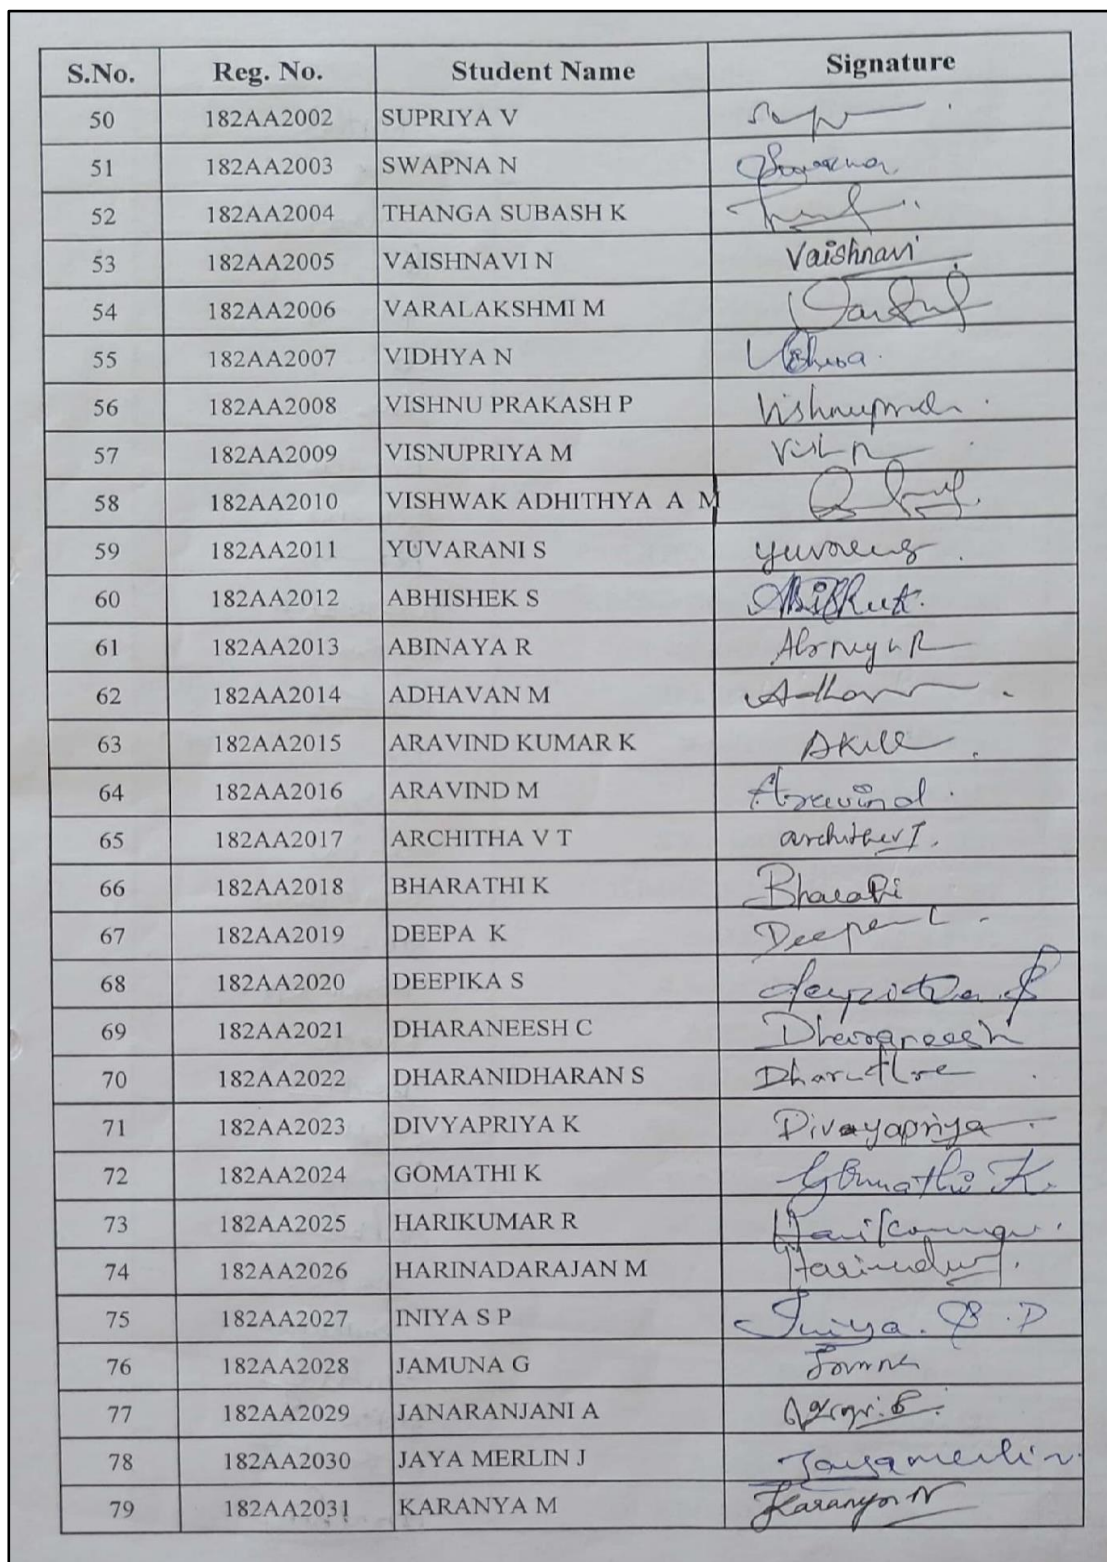 S.No. Reg. No. Student Name Signature
50 182AA2002 SUPRIYA V
51 182AA2003 SWAPNA N
52 182AA2004 THANGA SUBASH K
53 182AA2005 VAISHNAVI N Vaishnavi
54 182AA2006 VARALAKSHMI M
55 182AA2007 VIDHYA N
56 182AA2008 VISHNU PRAKASH P
57 182AA2009 VISNUPRIYA M
58 182AA2010 VISHWAK ADHITHYA A M
59 182AA2011 YUVARANI S
60 182AA2012 ABHISHEK S
61 182AA2013 ABINAYA R
62 182AA2014 ADHAVAN M
63 182AA2015 ARAVIND KUMAR K
64 182AA2016 ARAVIND M Aravind
65 182AA2017 ARCHITHA V T
66 182AA2018 BHARATHI K
67 182AA2019 DEEPA K
68 182AA2020 DEEPIKA S
69 182AA2021 DHARANEESH C Dharaneesh
70 182AA2022 DHARANIDHARAN S
71 182AA2023 DIVYAPRIYA K Divayapriya
72 182AA2024 GOMATHI K Gomathi K.
73 182AA2025 HARIKUMAR R
74 182AA2026 HARINADARAJAN M
75 182AA2027 INIYA S P Iniya. S. P
76 182AA2028 JAMUNA G
77 182AA2029 JANARANJANI A
78 182AA2030 JAYA MERLIN J Jayamerlin
79 182AA2031 KARANYA M